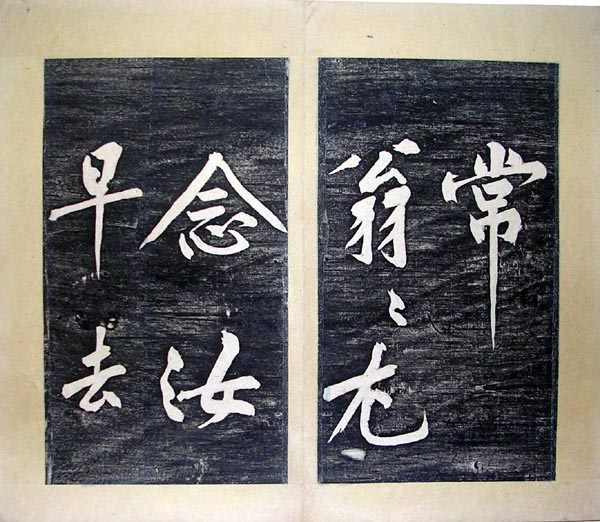 常
翁〻尤
念汝
早去